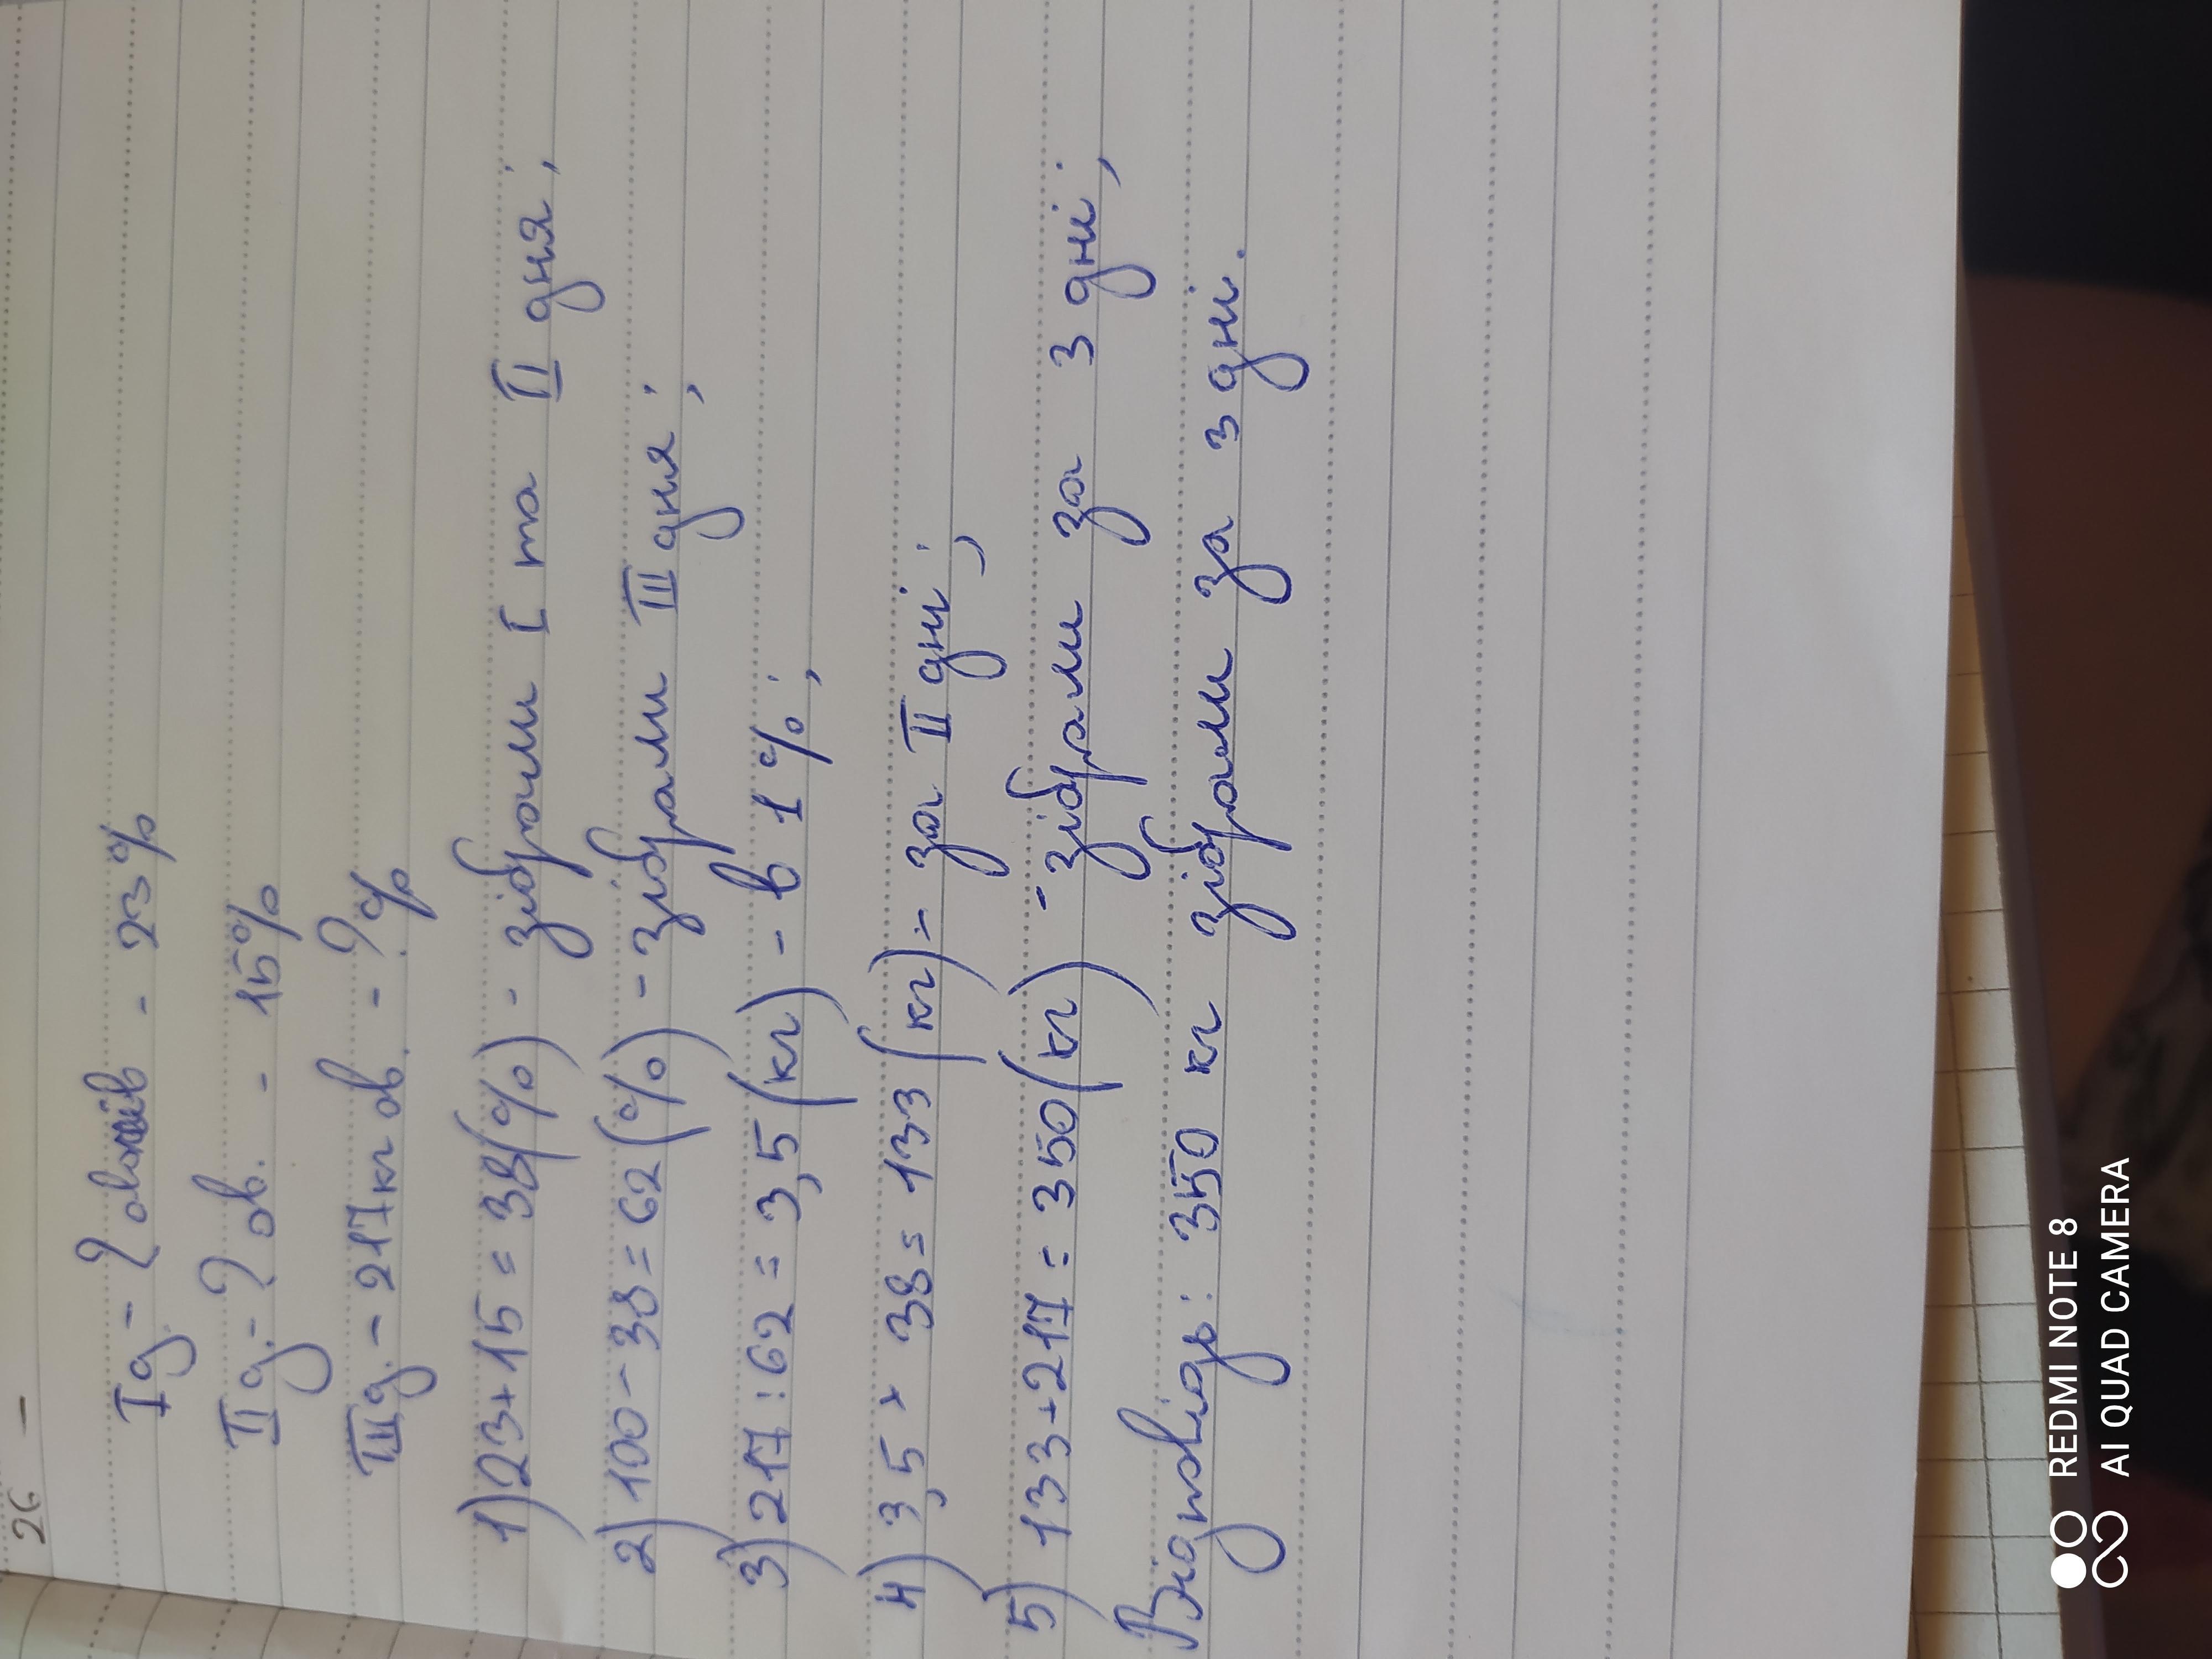 26 -
I д. - ? овочів - 23%
II д. - ? ов. - 15%
III д. - 217 кг ов. - ?%
1) 23+15=38(%) - зібрали I та II дня;
2) 100-38=62(%) - зібрали III дня;
3) 217:62=3,5(кг) - в 1%;
4) 3,5×38=133(кг) - за II дні;
5) 133+217=350(кг) - зібрали за 3 дні;
Відповідь: 350 кг зібрали за 3 дні.
REDMI NOTE 8
AI QUAD CAMERA